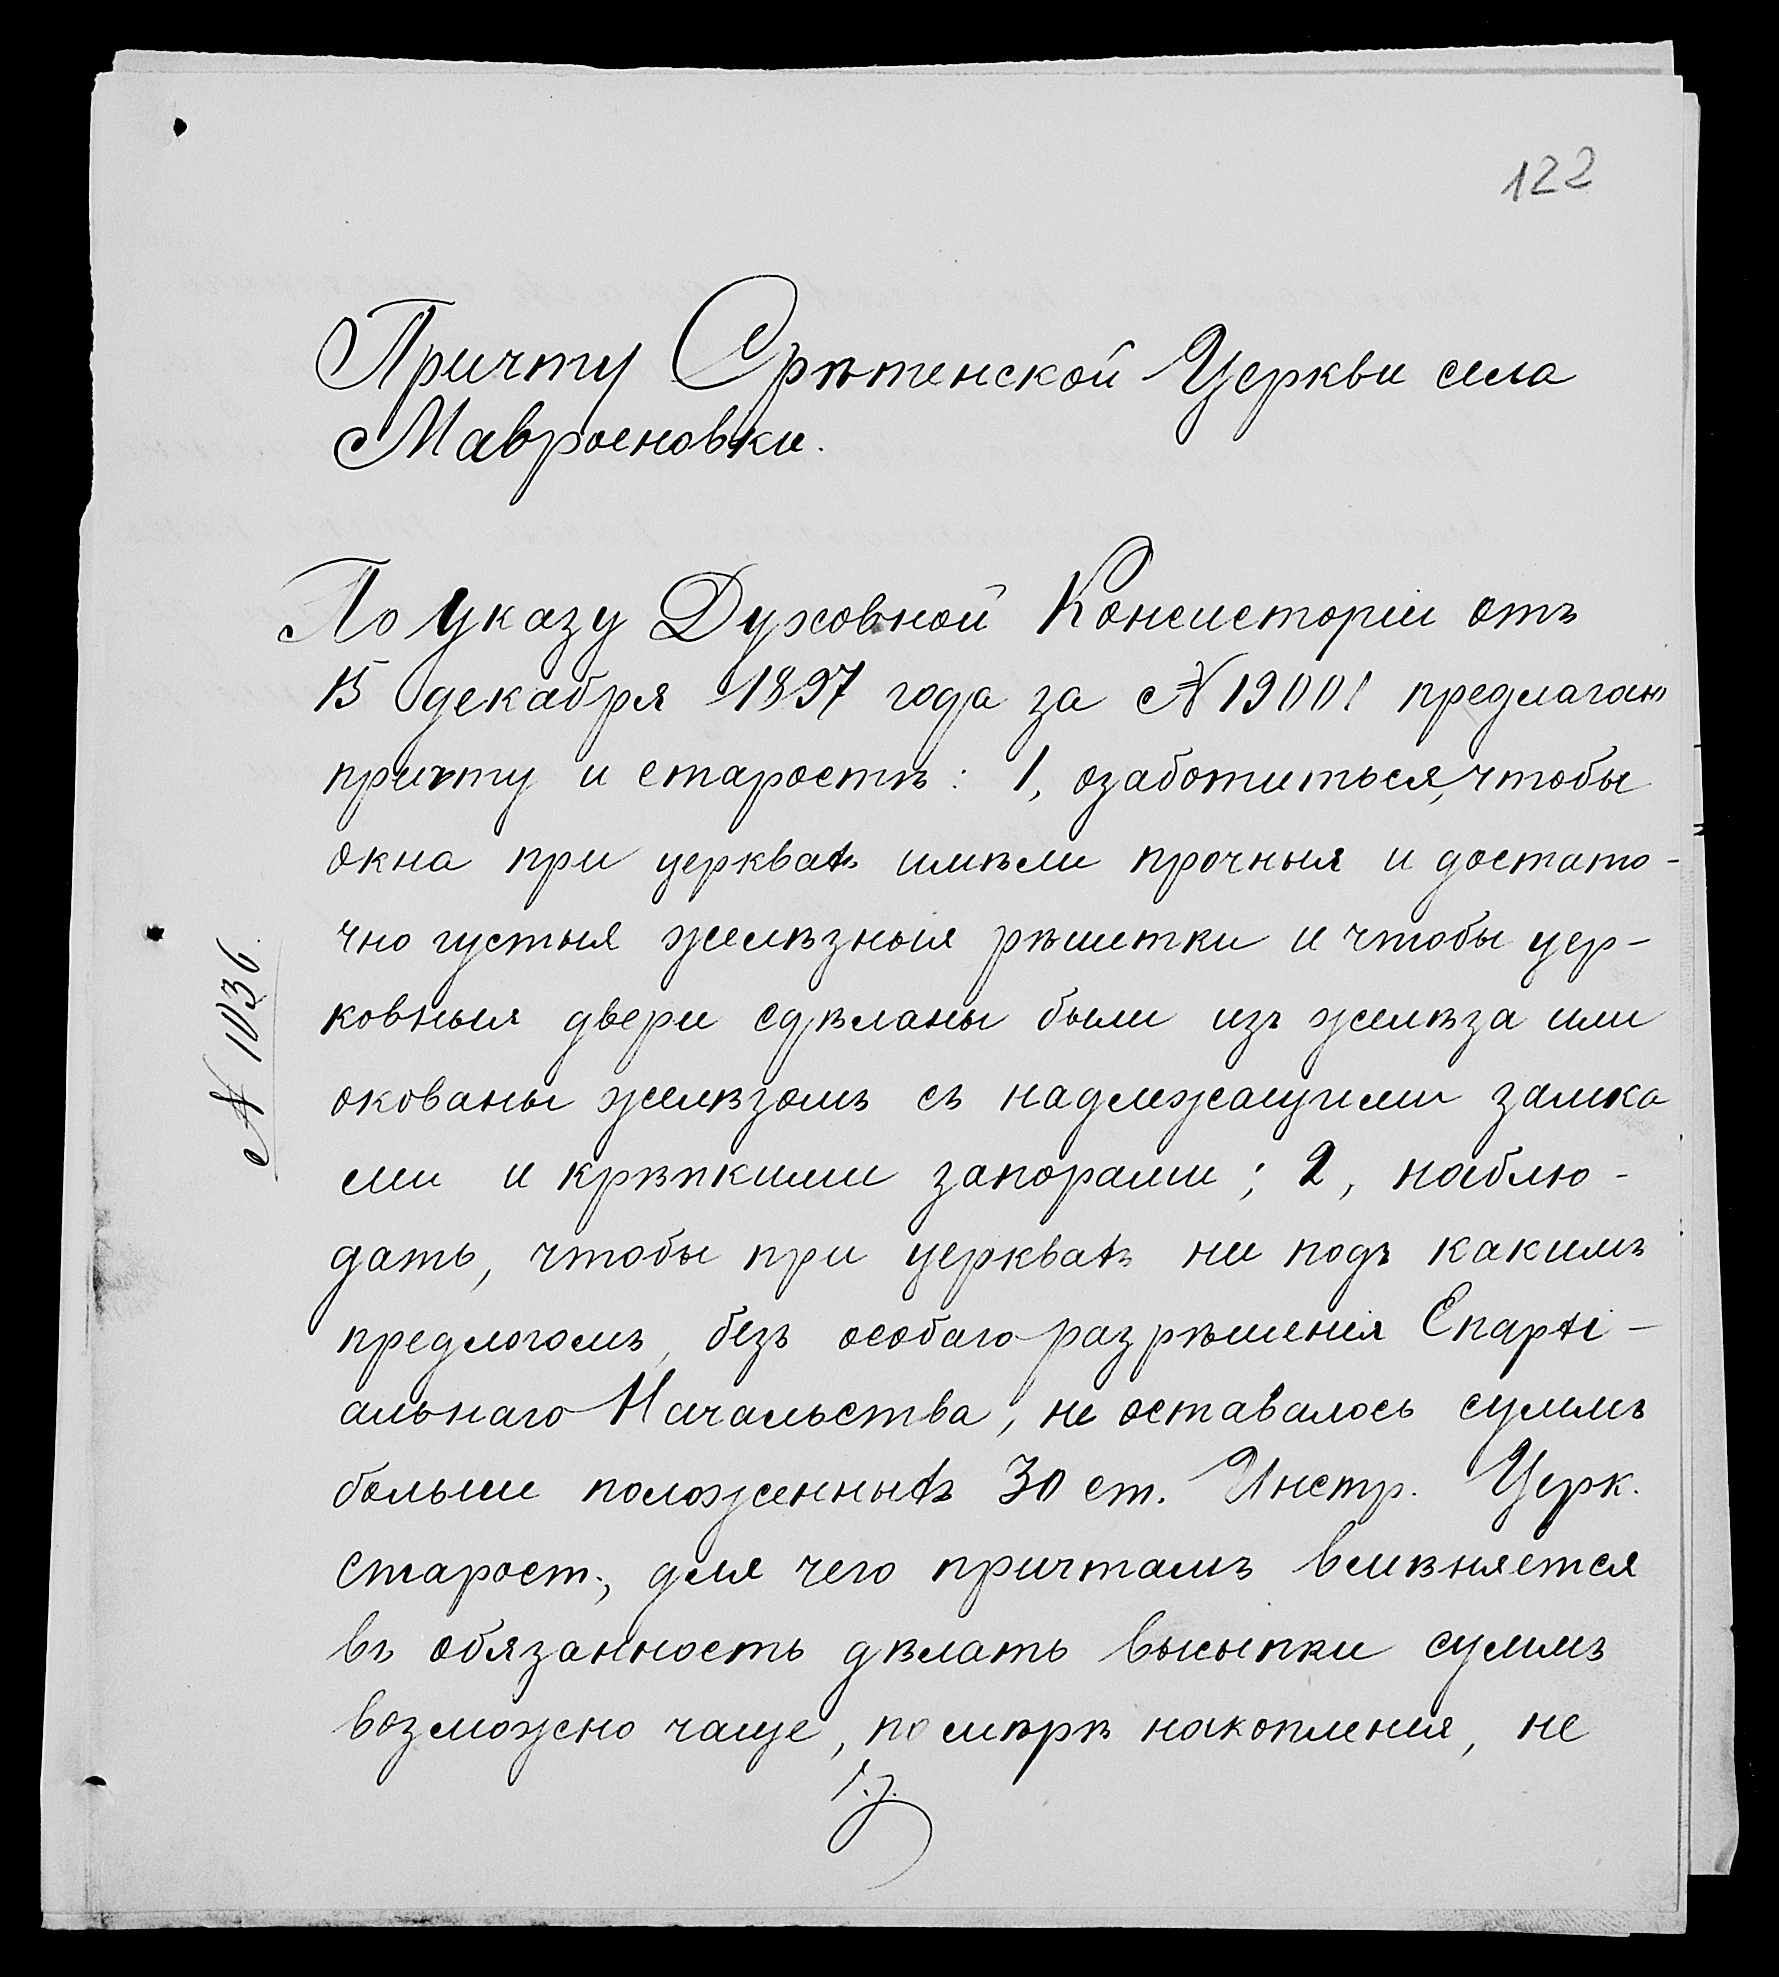 122
Причту Срѣтенской Церкви села
Мавроеновки.
По указу Духовной Консисторіи отъ
15 декабря 1897 года за № 19001 предлагаю
причту и старостѣ: 1, озаботиться, чтобы
окна при церквахъ имѣли прочныя и достато-
чно густыя желѣзныя рѣшетки и чтобы цер-
ковныя двери сдѣланы были изъ желѣза или
окованы желѣзомъ съ надлежащими замка
ми и крѣпкими запорами; 2, наблю-
дать, чтобы при церквахъ ни подъ какимъ
предлогомъ, безъ особаго разрѣшенія Епархі-
альнаго Начальства, не оставалось суммъ
больше положенныхъ 30 ст. Инстр. Церк.
Старост., для чего причтамъ вмѣняется
въ обязанность дѣлать высыпки суммъ
возможно чаще, по мѣрѣ накопленія, не
№ 1036.